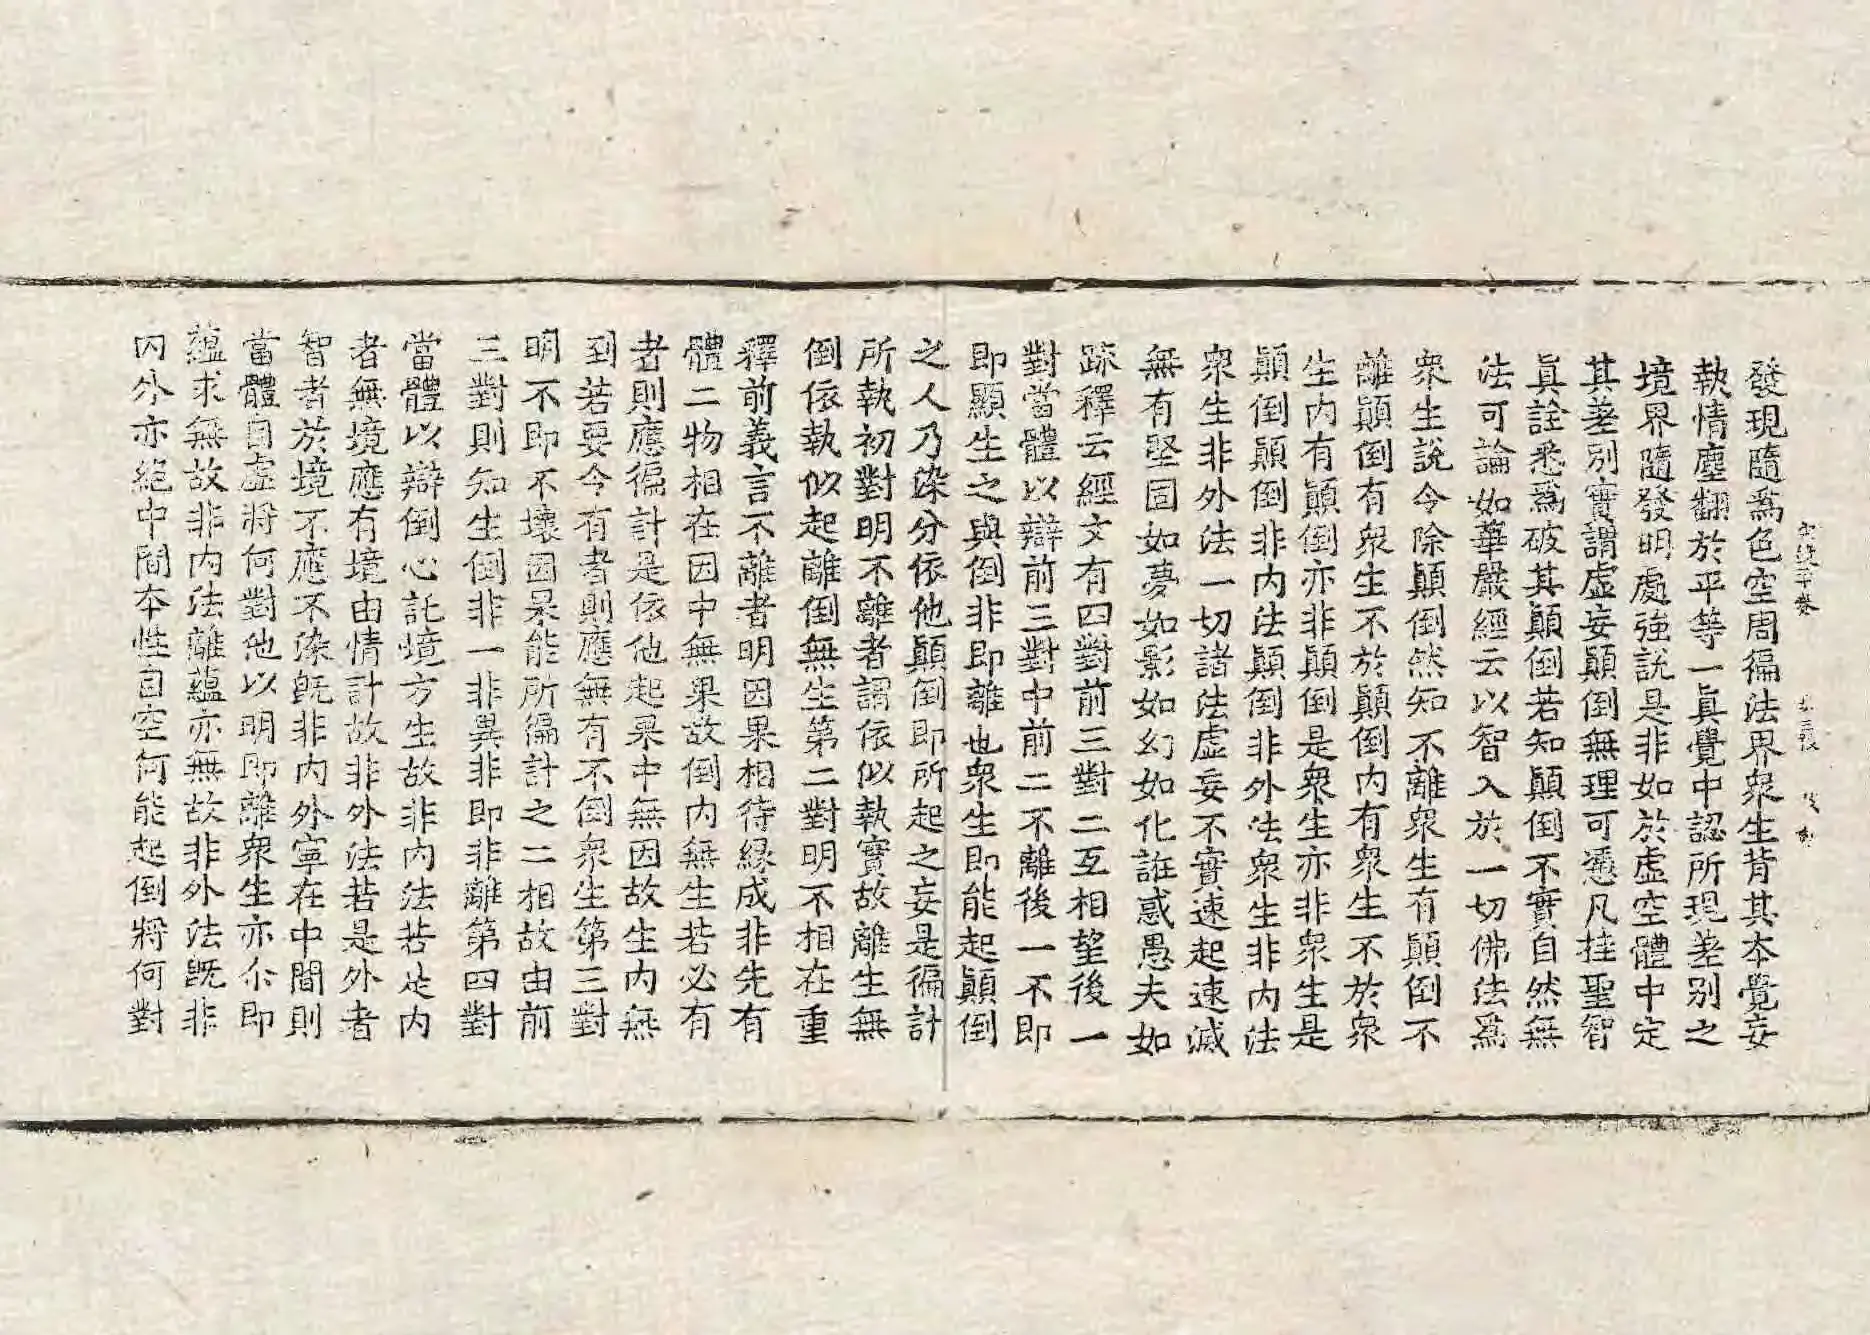 發現隨爲色空周徧法界衆生背其本覺妄
執情塵翻於平等一眞覺中認所現差别之
境界隨發明處強說是非如於虛空體中定
其差別實謂虛妄顚倒無理可憑凡挂聖智
眞詮悉爲破其顚倒若知顚倒不實自然無
法可論如華嚴經云以智入於一切佛法爲
衆生說令除顚倒然知不離衆生有顚倒不
離顚倒有衆生不於顚倒内有衆生不於衆
生内有顚倒亦非顚倒是衆生亦非衆生是
顚倒顚倒非内法顚倒非外法衆生非内法
衆生非外法一切諸法虛妄不實速起速滅
無有堅固如夢如影如幻如化誑惑愚夫如
䟽釋云經文有四對前三對二互相望後一
對當體以辯前三對中前二不離後一不即
即顯生之與倒非即離也衆生即能起顚倒
之人乃染分依他顚倒即所起之妄是徧計
所執初對明不離者謂依似執實故離生無
倒依執似起離倒無生第二對明不相在重
釋前義言不離者明因果相待縁成非先有
體二物相在因中無果故倒内無生若必有
者則應徧計是依他起果中無因故生内無
到若要令有者則應無有不倒衆生第三對
明不即不壞因果能所徧計之二相故由前
三對則知生倒非一非異非即非離第四對
當體以辯倒心託境方生故非内法若是内
者無境應有境由情計故非外法若是外者
智者於境不應不染旣非内外寧在中間則
當體自虛將何對他以明即離衆生亦尒即
蘊求無故非内法離蘊亦無故非外法旣非
内外亦絕中間本性自空何能起倒將何對